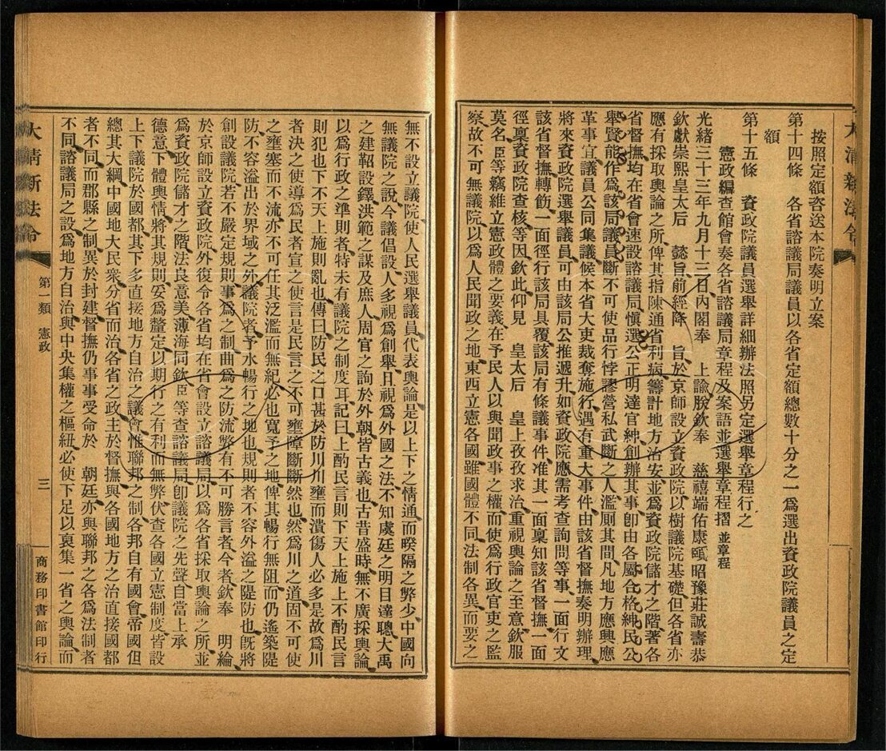 大清新法令
按照定額咨送本院奏明立案
第十四條　各省諮議局議員以各省定額總數十分之一爲選出資政院議員之定
額
第十五條　資政院議員選舉詳細辦法照另定選舉章程行之
憲政編查館會奏各省諮議局章程及案語並選舉章程摺 並章程
光緒三十三年九月十三日內閣奉　上諭朕欽奉　慈禧端佑康頤昭豫莊誠壽恭
欽獻崇熙皇太后　懿旨前經降　旨於京師設立資政院以樹議院基礎但各省亦
應有採取輿論之所俾其指陳通省利病籌計地方治安並爲資政院儲才之階著各
省督撫均在省會速設諮議局愼選公正明達官紳創辦其事卽由各屬合格紳民公
舉賢能作爲該局議員斷不可使品行悖謬營私武斷之人濫厠其間凡地方應興應
革事宜議員公同集議候本省大吏裁奪施行遇有重大事件由該省督撫奏明辦理
將來資政院選舉議員可由該局公推遞升如資政院應需考查詢問等事一面行文
該省督撫轉飭一面徑行該局具覆該局有條議事件准其一面稟知該省督撫一面
徑稟資政院查核等因欽此仰見　皇太后　皇上孜孜求治重視輿論之至意欽服
莫名臣等竊維立憲政體之要義在予民人以與聞政事之權而使爲行政官吏之監
察故不可無議院以爲人民聞政之地東西立憲各國雖國體不同法制各異而要之
無不設立議院使人民選舉議員代表輿論是以上下之情通而暌隔之弊少中國向
無議院之說今議倡設人多視爲創舉且視爲外國之法不知虞廷之明目達聰大禹
之建鞀設鐸洪範之謀及庶人周官之詢於外朝皆古義也古昔盛時無不廣採輿論
以爲行政之準則者特未有議院之制度耳記曰上酌民言則下天上施上不酌民言
則犯也下不天上施則亂也傳曰防民之口甚於防川川壅而潰傷人必多是故爲川
者決之使導爲民者宣之使言是民言之不可壅障斷斷然也然爲川之道固不可使
之壅塞而不流亦不可任其泛濫而無紀必也寬予之地俾其暢行無阻而仍遙築隄
防不容溢出於界域之外議院者予水暢行之地也規則者不容外溢之隄防也旣將
創設議院若不嚴定規則事爲之制曲爲之防流弊有不可勝言者今者欽奉　明綸
於京師設立資政院外復令各省均在省會設立諮議局以爲各省採取輿論之所並
爲資政院儲才之階法良意美薄海同欽臣等查諮議局卽議院之先聲自當上承
德意下體輿情將其規則妥爲釐定以期行之有利而無弊伏查各國立憲制度皆設
上下議院於國都其下多直接地方自治之議會惟聯邦之制各邦自有國會帝國但
總其大綱中國地大民衆分省而治各省之政主於督撫與各國地方之治直接國都
者不同而郡縣之制異於封建督撫仍事事受命於　朝廷亦與聯邦之各爲法制者
不同諮議局之設爲地方自治與中央集權之樞紐必使下足以裒集一省之輿論而
大清新法令
第一類　憲政
三
商務印書館印行